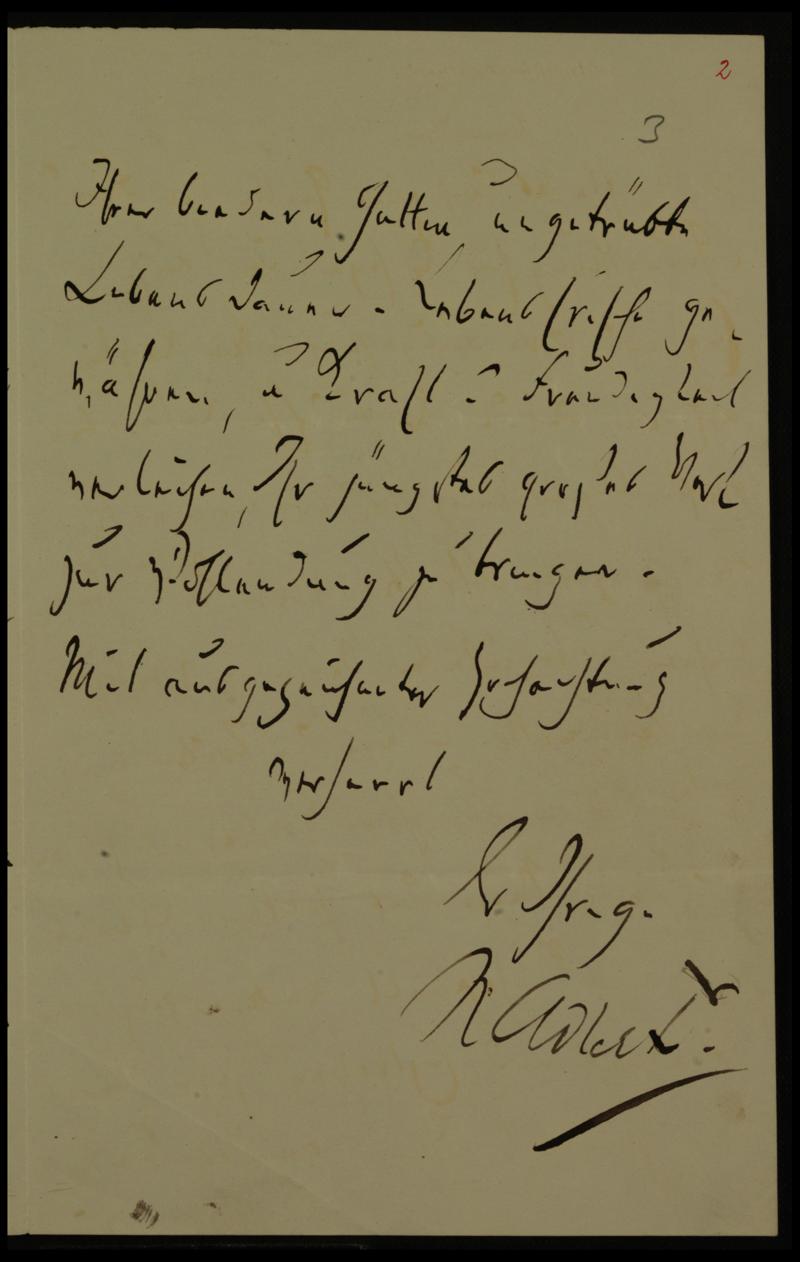 2
3
Ihrer beidern Gatten ungetrübte
Lebensdauer u. Lebensfrische ge-
währen, u Kraft u Freudigkeit
verleihen, Ihr jüngstes großes Werk
zur Vollendung zu bringen.
Mit ausgezeichneter Hochachtung
verharrt
Ihrige
N Adler.